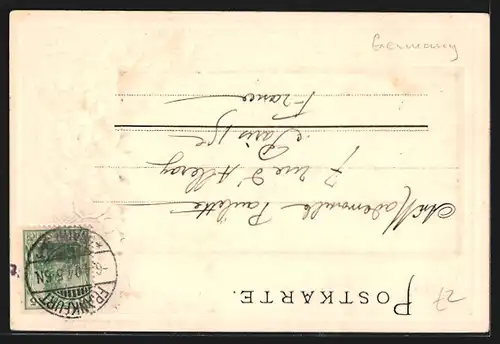 POSTKARTE.
Mademoiselle Paulette
7 rue d'Alleray
Paris 15e
France
FRANKFURT
Germany
27